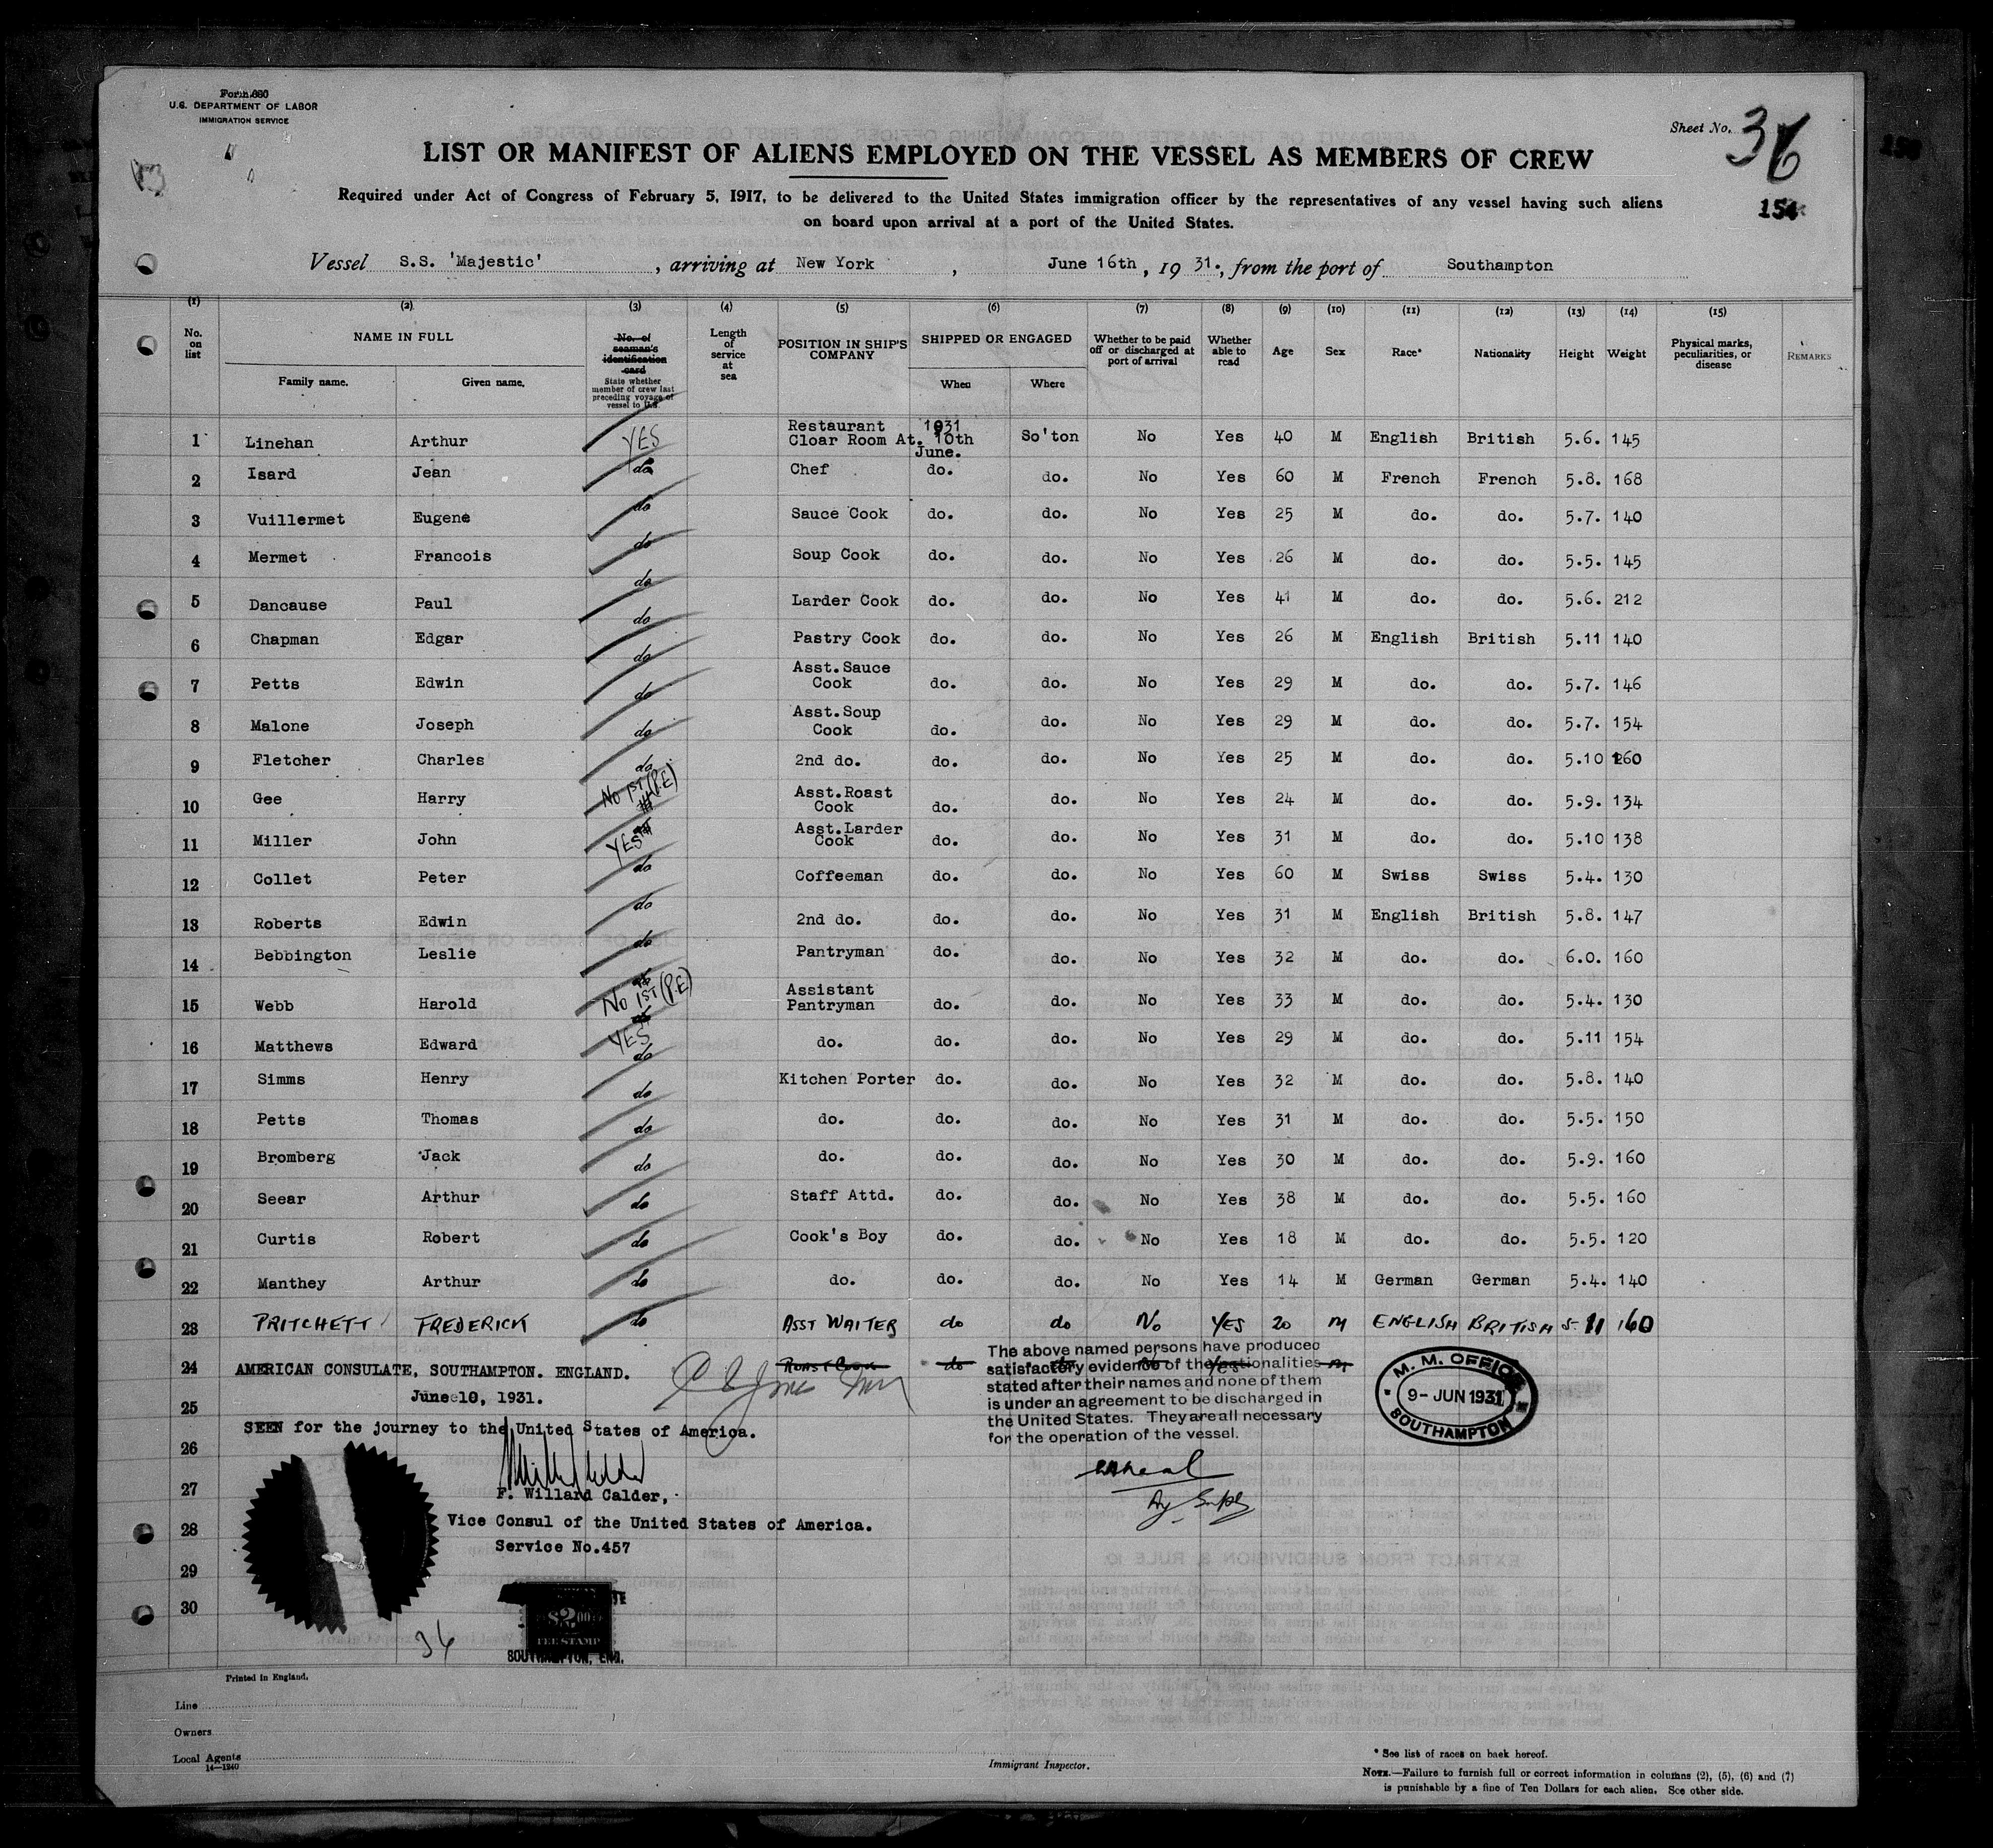 Form 680
U.S. DEPARTMENT OF LABOR
IMMIGRATION SERVICE
Sheet No. 36
154
LIST OR MANIFEST OF ALIENS EMPLOYED ON THE VESSEL AS MEMBERS OF CREW
Required under Act of Congress of February 5, 1917, to be delivered to the United States immigration officer by the representatives of any vessel having such aliens
on board upon arrival at a port of the United States.
Vessel S.S. 'Majestic', arriving at New York, June 16th, 19 31., from the port of Southampton
(1) (2) (3) (4) (5) (6) (7) (8) (9) (10) (11) (12) (13) (14) (15)
No. on list NAME IN FULL Family name. Given name. No. of seaman's identification card State whether member of crew last preceding voyage of vessel to U.S. Length of service at sea POSITION IN SHIP'S COMPANY SHIPPED OR ENGAGED When Where Whether to be paid off or discharged at port of arrival Whether able to read Age Sex Race* Nationality Height Weight Physical marks, peculiarities, or disease REMARKS
1 Linehan Arthur YES Restaurant Cloar Room At. 1931 10th June. So'ton No Yes 40 M English British 5.6. 145
2 Isard Jean do Chef do. do. No Yes 60 M French French 5.8. 168
3 Vuillermet Eugene do Sauce Cook do. do. No Yes 25 M do. do. 5.7. 140
4 Mermet Francois do Soup Cook do. do. No Yes 26 M do. do. 5.5. 145
5 Dancause Paul do Larder Cook do. do. No Yes 41 M do. do. 5.6. 212
6 Chapman Edgar do Pastry Cook do. do. No Yes 26 M English British 5.11 140
7 Petts Edwin do Asst.Sauce Cook do. do. No Yes 29 M do. do. 5.7. 146
8 Malone Joseph do Asst.Soup Cook do. do. No Yes 29 M do. do. 5.7. 154
9 Fletcher Charles do 2nd do. do. do. No Yes 25 M do. do. 5.10 160
10 Gee Harry No 1ST (P.E) Asst.Roast Cook do. do. No Yes 24 M do. do. 5.9. 134
11 Miller John YES Asst.Larder Cook do. do. No Yes 31 M do. do. 5.10 138
12 Collet Peter do Coffeeman do. do. No Yes 60 M Swiss Swiss 5.4. 130
13 Roberts Edwin do 2nd do. do. do. No Yes 31 M English British 5.8. 147
14 Bebbington Leslie do Pantryman do. do. No Yes 32 M do. do. 6.0. 160
15 Webb Harold No 1ST (P.E) Assistant Pantryman do. do. No Yes 33 M do. do. 5.4. 130
16 Matthews Edward YES do. do. do. No Yes 29 M do. do. 5.11 154
17 Simms Henry do Kitchen Porter do. do. No Yes 32 M do. do. 5.8. 140
18 Petts Thomas do do. do. do. No Yes 31 M do. do. 5.5. 150
19 Bromberg Jack do do. do. do. No Yes 30 M do. do. 5.9. 160
20 Seear Arthur do Staff Attd. do. do. No Yes 38 M do. do. 5.5. 160
21 Curtis Robert do Cook's Boy do. do. No Yes 18 M do. do. 5.5. 120
22 Manthey Arthur do do. do. do. No Yes 14 M German German 5.4. 140
23 PRITCHETT FREDERICK do ASST WAITER do do No YES 20 M ENGLISH BRITISH 5.11 160
24 ROAST COOK do do No Yes M
AMERICAN CONSULATE, SOUTHAMPTON. ENGLAND.
25 June 10, 1931.
SEEN for the journey to the United States of America.
26
27 F. Willard Calder,
28 Vice Consul of the United States of America.
Service No.457
29
30
$2.00
FEE STAMP
SOUTHAMPTON, ENG.
36
The above named persons have produced
satisfactory evidence of the nationalities
stated after their names and none of them
is under an agreement to be discharged in
the United States. They are all necessary
for the operation of the vessel.
M. M. OFFICE
9-JUN 1931
SOUTHAMPTON
Printed in England.
Line
Owners
Local Agents
14—1240
Immigrant Inspector.
* See list of races on back hereof.
NOTE.—Failure to furnish full or correct information in columns (2), (5), (6) and (7)
is punishable by a fine of Ten Dollars for each alien. See other side.